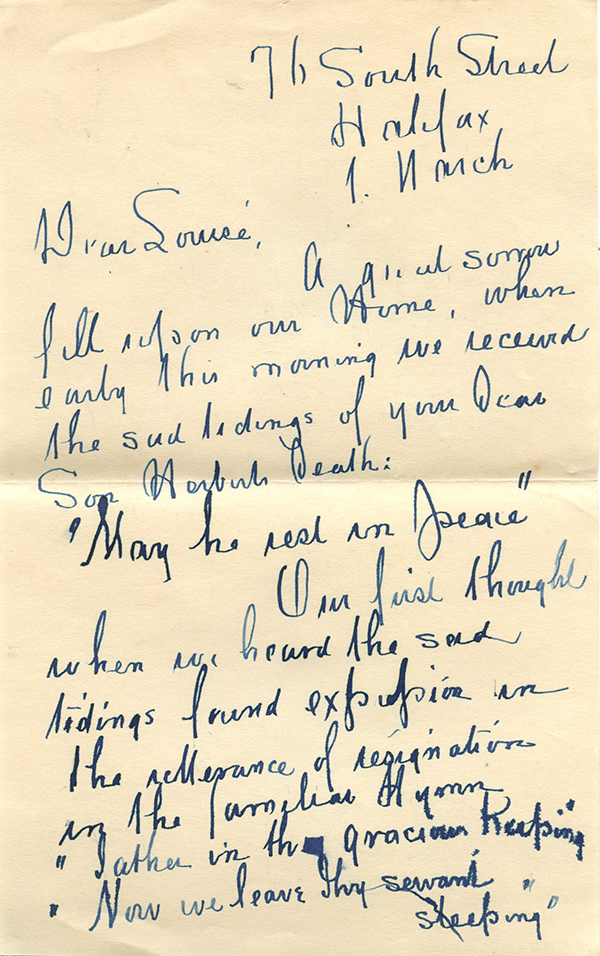 76 South Street
Halifax
1. March
Dear Louise,
A great sorrow
fell upon our Home, when
early this morning we received
the sad tidings of your Dear
Son Herberts Death:
"May he rest in peace"
Our first thought
when we heard the sad
tidings found expression in
the utterance of resignation
in the familiar Hymn
"Father in thy gracious keeping"
"Now we leave thy servant
sleeping"